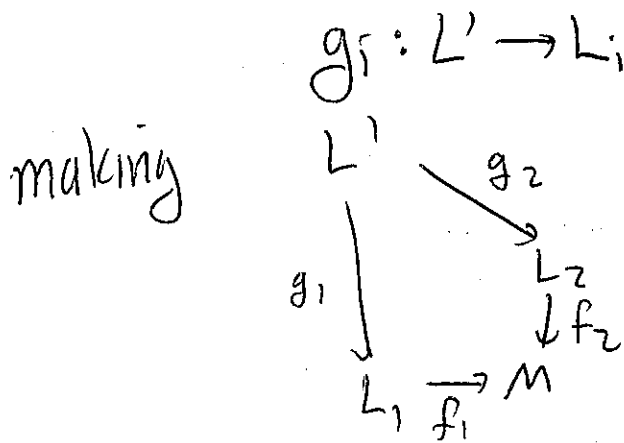 gᵢ : L' → Lᵢ
making L'
g₂
g₁ L₂
↓ f₂
L₁ → M
f₁